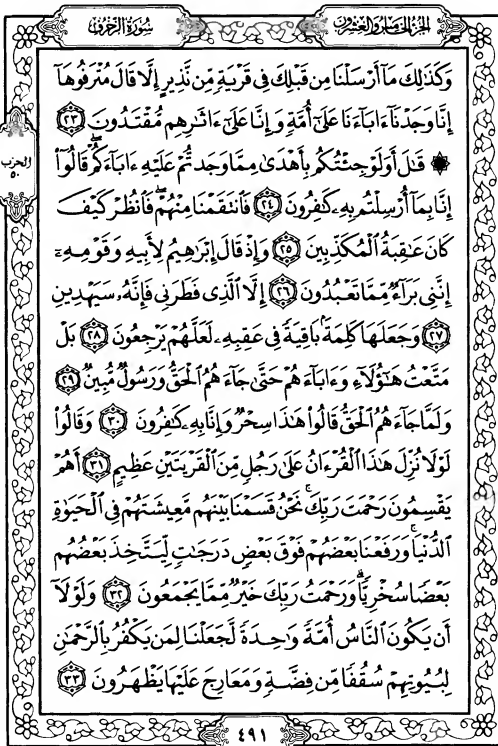 الجزء الخامس والعشرون
سورة الزخرف
وَكَذَٰلِكَ مَآ أَرْسَلْنَا مِن قَبْلِكَ فِي قَرْيَةٍ مِّن نَّذِيرٍ إِلَّا قَالَ مُتْرَفُوهَآ
إِنَّا وَجَدْنَآ ءَابَآءَنَا عَلَىٰٓ أُمَّةٍ وَإِنَّا عَلَىٰٓ ءَاثَٰرِهِم مُّقْتَدُونَ ٢٣
الحزب
٥٠
۞ قَٰلَ أَوَلَوْ جِئْتُكُم بِأَهْدَىٰ مِمَّا وَجَدتُّمْ عَلَيْهِ ءَابَآءَكُمْ ۖ قَالُوٓا۟
إِنَّا بِمَآ أُرْسِلْتُم بِهِۦ كَٰفِرُونَ ٢٤ فَٱنتَقَمْنَا مِنْهُمْ ۖ فَٱنظُرْ كَيْفَ
كَانَ عَٰقِبَةُ ٱلْمُكَذِّبِينَ ٢٥ وَإِذْ قَالَ إِبْرَٰهِيمُ لِأَبِيهِ وَقَوْمِهِۦٓ
إِنَّنِي بَرَآءٌ مِّمَّا تَعْبُدُونَ ٢٦ إِلَّا ٱلَّذِي فَطَرَنِي فَإِنَّهُۥ سَيَهْدِينِ
٢٧ وَجَعَلَهَا كَلِمَةًۢ بَاقِيَةً فِي عَقِبِهِۦ لَعَلَّهُمْ يَرْجِعُونَ ٢٨ بَلْ
مَتَّعْتُ هَٰٓؤُلَآءِ وَءَابَآءَهُمْ حَتَّىٰ جَآءَهُمُ ٱلْحَقُّ وَرَسُولٌ مُّبِينٌ ٢٩
وَلَمَّا جَآءَهُمُ ٱلْحَقُّ قَالُوا۟ هَٰذَا سِحْرٌ وَإِنَّا بِهِۦ كَٰفِرُونَ ٣٠ وَقَالُوا۟
لَوْلَا نُزِّلَ هَٰذَا ٱلْقُرْءَانُ عَلَىٰ رَجُلٍ مِّنَ ٱلْقَرْيَتَيْنِ عَظِيمٍ ٣١ أَهُمْ
يَقْسِمُونَ رَحْمَتَ رَبِّكَ ۚ نَحْنُ قَسَمْنَا بَيْنَهُم مَّعِيشَتَهُمْ فِي ٱلْحَيَوٰةِ
ٱلدُّنْيَا ۚ وَرَفَعْنَا بَعْضَهُمْ فَوْقَ بَعْضٍ دَرَجَٰتٍ لِّيَتَّخِذَ بَعْضُهُم
بَعْضًا سُخْرِيًّا ۗ وَرَحْمَتُ رَبِّكَ خَيْرٌ مِّمَّا يَجْمَعُونَ ٣٢ وَلَوْلَآ
أَن يَكُونَ ٱلنَّاسُ أُمَّةً وَٰحِدَةً لَّجَعَلْنَا لِمَن يَكْفُرُ بِٱلرَّحْمَٰنِ
لِبُيُوتِهِمْ سُقُفًا مِّن فِضَّةٍ وَمَعَارِجَ عَلَيْهَا يَظْهَرُونَ ٣٣
٤٩١